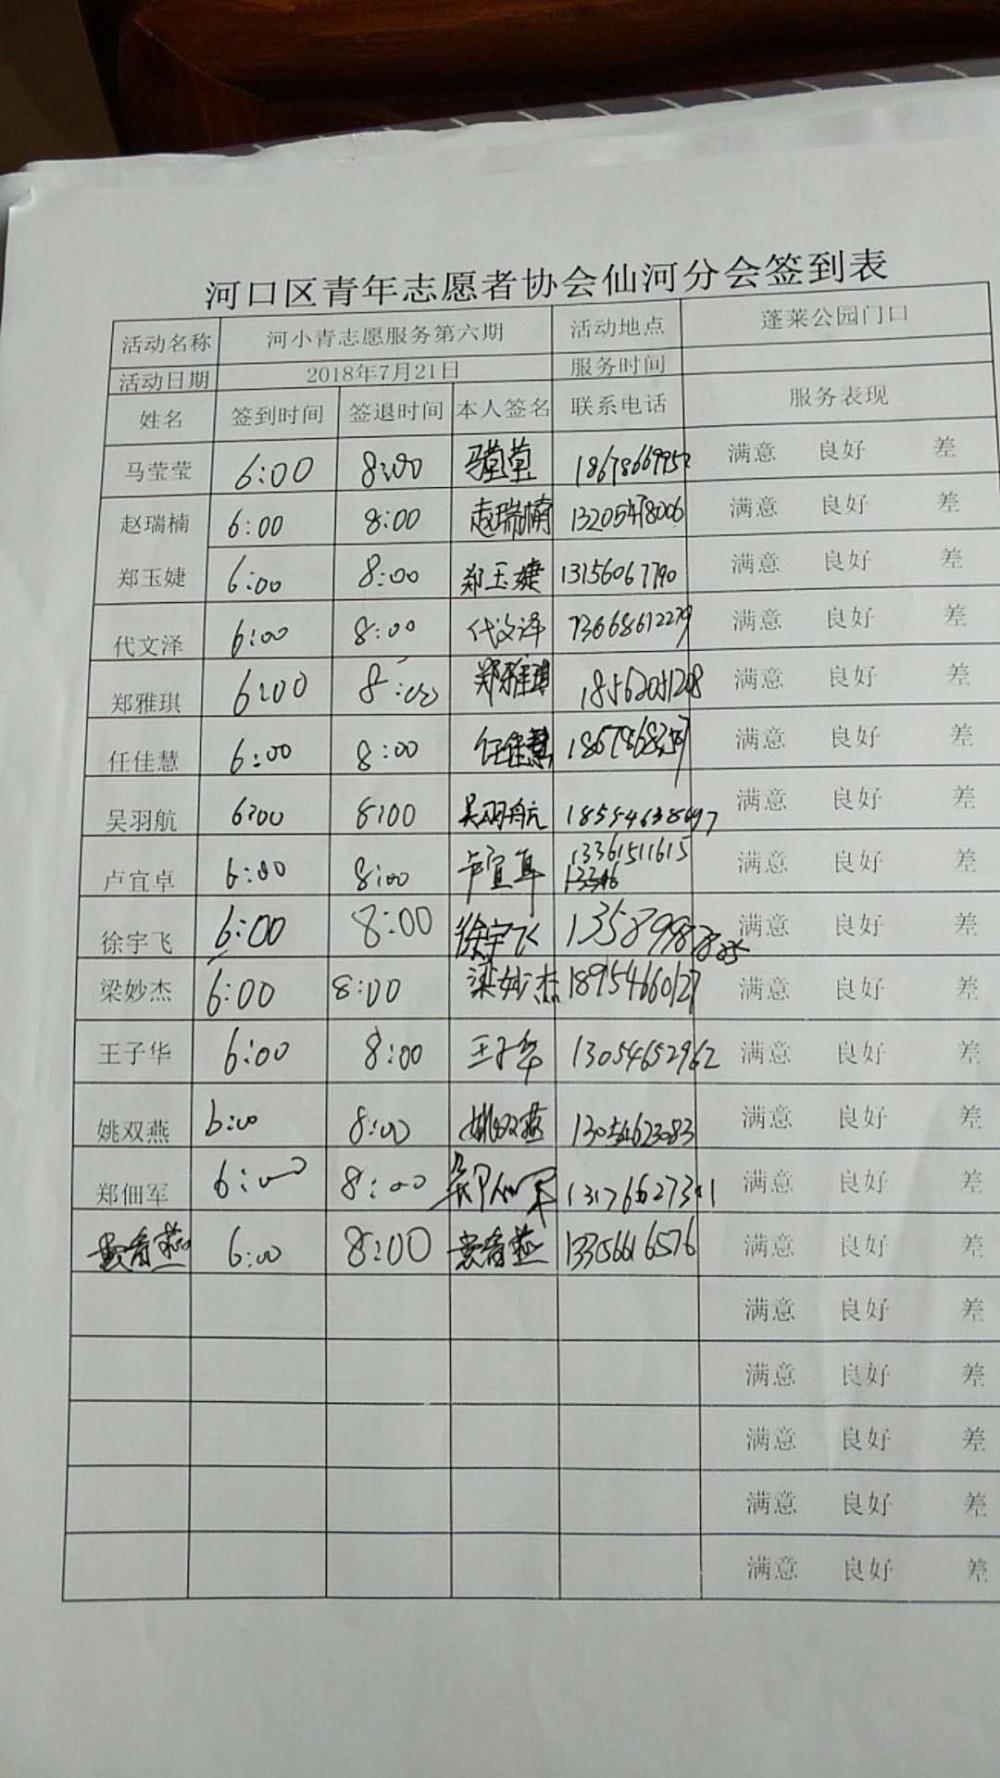 河口区青年志愿者协会仙河分会签到表
活动名称 河小青志愿服务第六期 活动地点 蓬莱公园门口
活动日期 2018年7月21日 服务时间
姓名 签到时间 签退时间 本人签名 联系电话 服务表现
马莹莹 6:00 8:00 马莹莹 满意 良好 差
赵瑞楠 6:00 8:00 赵瑞楠 13205478006 满意 良好 差
郑玉婕 6:00 8:00 郑玉婕 13156067790 满意 良好 差
代文泽 6:00 8:00 代文泽 满意 良好 差
郑雅琪 6:00 8:00 郑雅琪 18562051208 满意 良好 差
任佳慧 6:00 8:00 任佳慧 满意 良好 差
吴羽航 6:00 8:00 吴羽航 满意 良好 差
卢宜卓 6:00 8:00 卢宜卓 13361511615 满意 良好 差
徐宇飞 6:00 8:00 徐宇飞 满意 良好 差
梁妙杰 6:00 8:00 梁妙杰 18954660127 满意 良好 差
王子华 6:00 8:00 王子华 13054652962 满意 良好 差
姚双燕 6:00 8:00 姚双燕 13054623083 满意 良好 差
郑佃军 6:00 8:00 郑佃军 满意 良好 差
6:00 8:00 13356616576 满意 良好 差
满意 良好 差
满意 良好 差
满意 良好 差
满意 良好 差
满意 良好 差